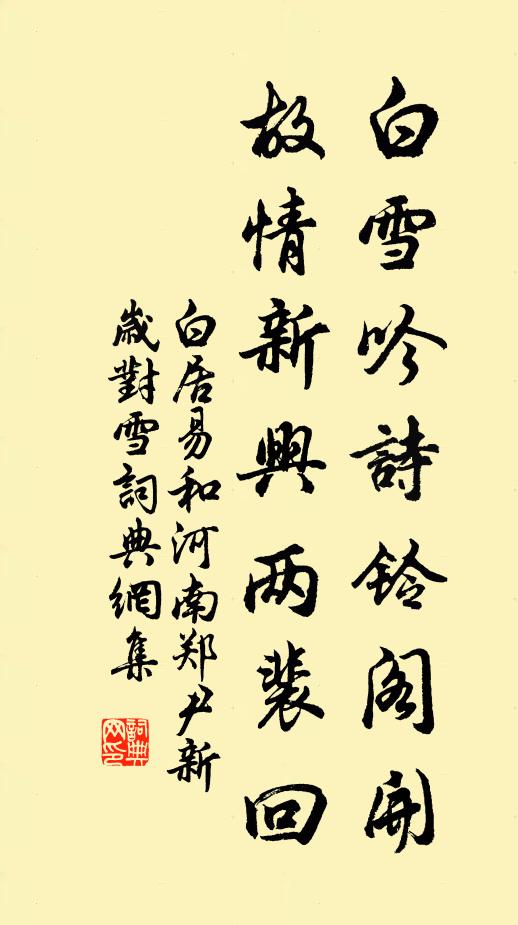 白雪吟詩鈴阁開
故情新興两裴回
白居易和河南郑尹新
歲對雪詞典網集
詞典
网印